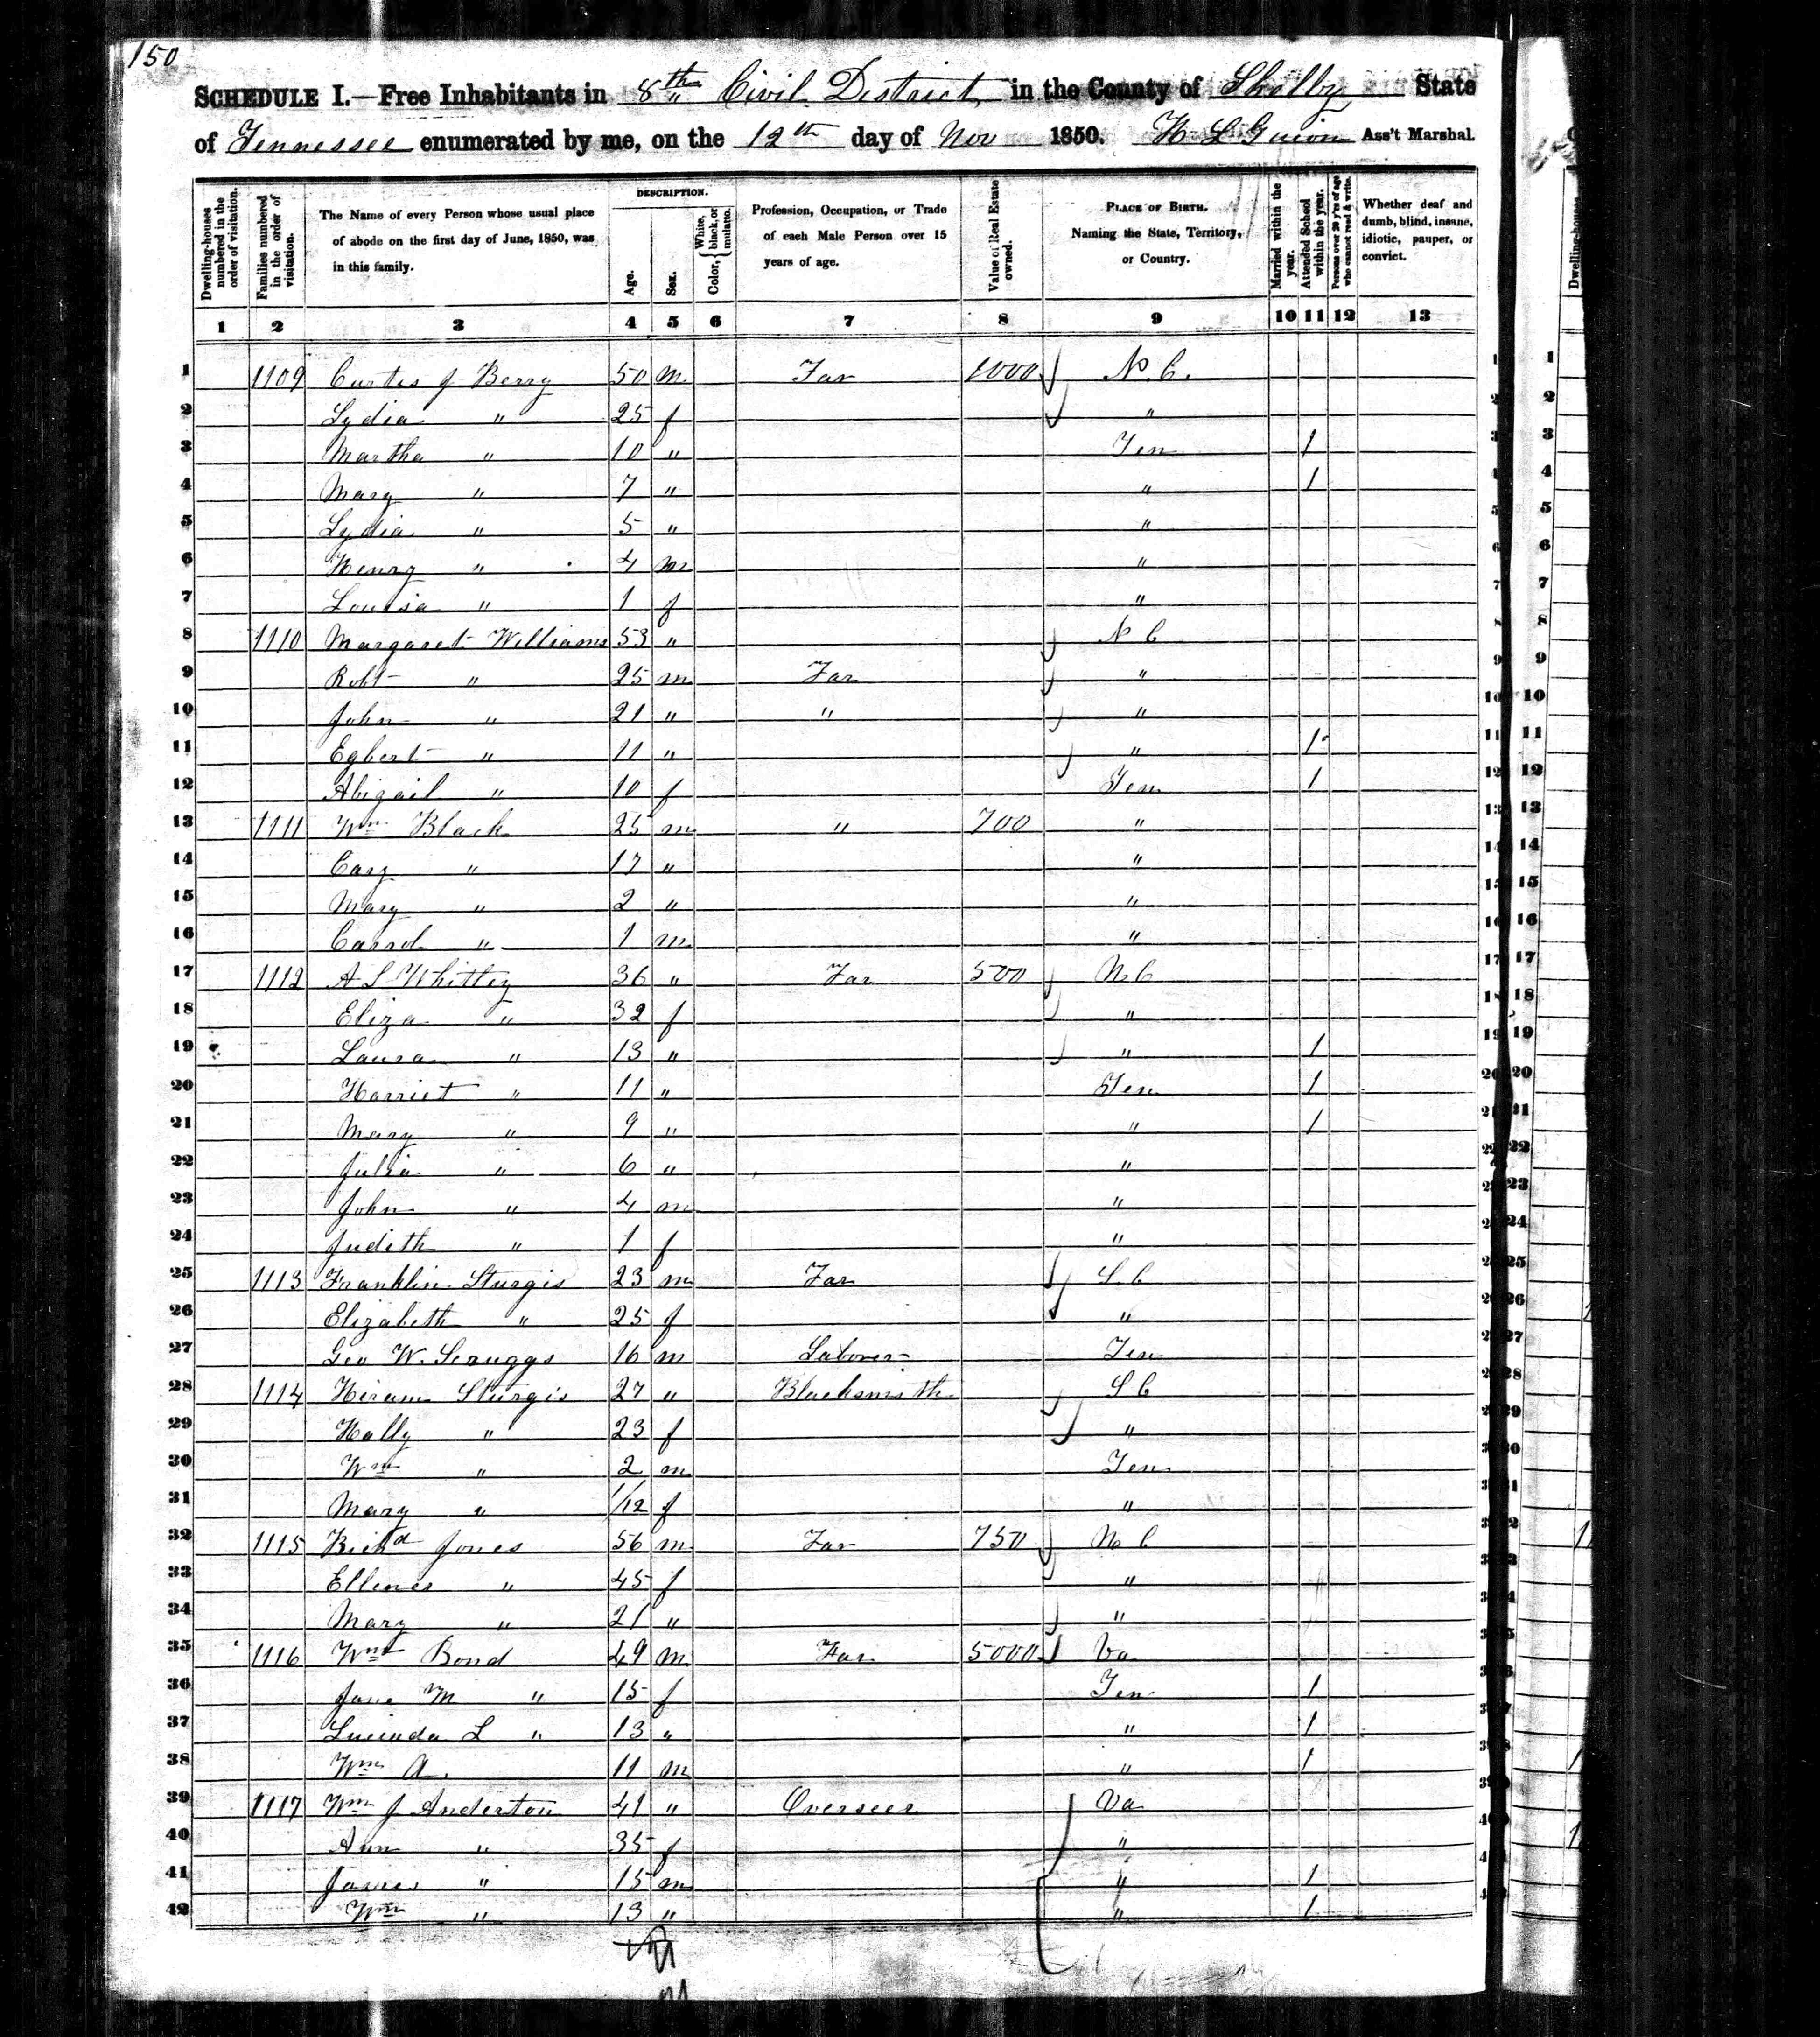 150
SCHEDULE I.—Free Inhabitants in 8th Civil District in the County of Shelby State
of Tennessee enumerated by me, on the 12th day of Nov 1850. H L Guion Ass't Marshal.
Dwelling-houses numbered in the order of visitation.
Families numbered in the order of visitation.
The Name of every Person whose usual place of abode on the first day of June, 1850, was in this family.
DESCRIPTION.
Age.
Sex.
Color, White, black, or mulatto.
Profession, Occupation, or Trade of each Male Person over 15 years of age.
Value of Real Estate owned.
PLACE OF BIRTH. Naming the State, Territory, or Country.
Married within the year.
Attended School within the year.
Persons over 20 y'rs of age who cannot read & write.
Whether deaf and dumb, blind, insane, idiotic, pauper, or convict.
1 2 3 4 5 6 7 8 9 10 11 12 13
1 1109 Curtis J Berry 50 m Far 1000 N. C. 1
2 Lydia " 25 f " 2
3 Martha " 10 " Ten 1 3
4 Mary " 7 " " 1 4
5 Lydia " 5 " " 5
6 Henry " 4 m " 6
7 Louisa " 1 f " 7
8 1110 Margaret Williams 53 " N C 8
9 Robt " 25 m Far " 9
10 John " 21 " " " 10
11 Egbert " 11 " " 1 11
12 Abigail " 10 f Ten 1 12
13 1111 Wm Black 25 m " 700 " 13
14 Cary " 17 " " 14
15 Mary " 2 " " 15
16 Carrol " 1 m " 16
17 1112 A L Whitley 36 " Far 500 N C 17
18 Eliza " 32 f " 18
19 Laura " 13 " " 1 19
20 Harriet " 11 " Ten 1 20
21 Mary " 9 " " 1 21
22 Julia " 6 " " 22
23 John " 4 m " 23
24 Judith " 1 f " 24
25 1113 Franklin Sturgis 23 m Far S C 25
26 Elizabeth " 25 f " 26
27 Geo W. Scruggs 16 m Laborer Ten 27
28 1114 Hiram Sturgis 27 " Blacksmith S C 28
29 Hally " 23 f " 29
30 Wm " 2 m Ten 30
31 Mary " 1/12 f " 31
32 1115 Richd Jones 56 m Far 750 N C
33 Ellenes " 45 f "
34 Mary " 21 " "
35 1116 Wm Bond 49 m Far 5000 Va
36 Jane M " 15 f Ten 1
37 Lucinda L " 13 " " 1
38 Wm A. 11 m " 1
39 1117 Wm J Anderton 41 " Overseer Va
40 Ann " 35 f "
41 James " 15 m " 1
42 Wm " 13 " " 1